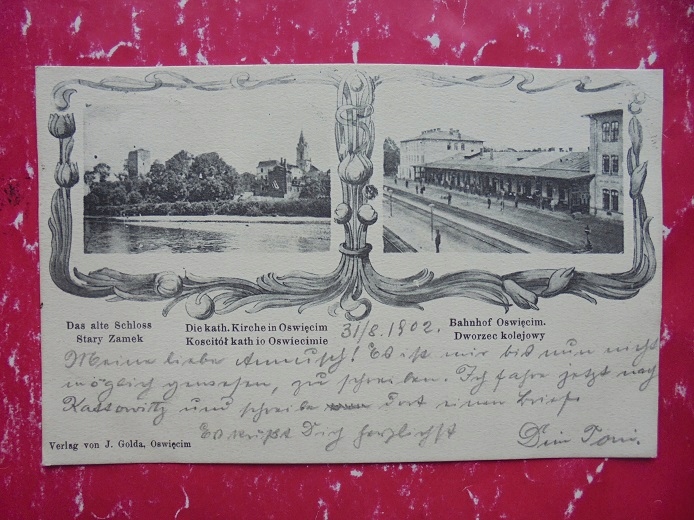 Das alte Schloss
Stary Zamek
Die kath. Kirche in Oswięcim
Kościół kath io Oswiecimie
31/8. 1902.
Bahnhof Oswięcim.
Dworzec kolejowy
Meine liebe Annusch! Es ist mir bis nun nicht
möglich gewesen, zu schreiben. Ich fahre jetzt nach
Kattowitz und schreibe dort einen Brief.
Es küßt Dich herzlichst
Dein Toni.
Verlag von J. Golda, Oswięcim